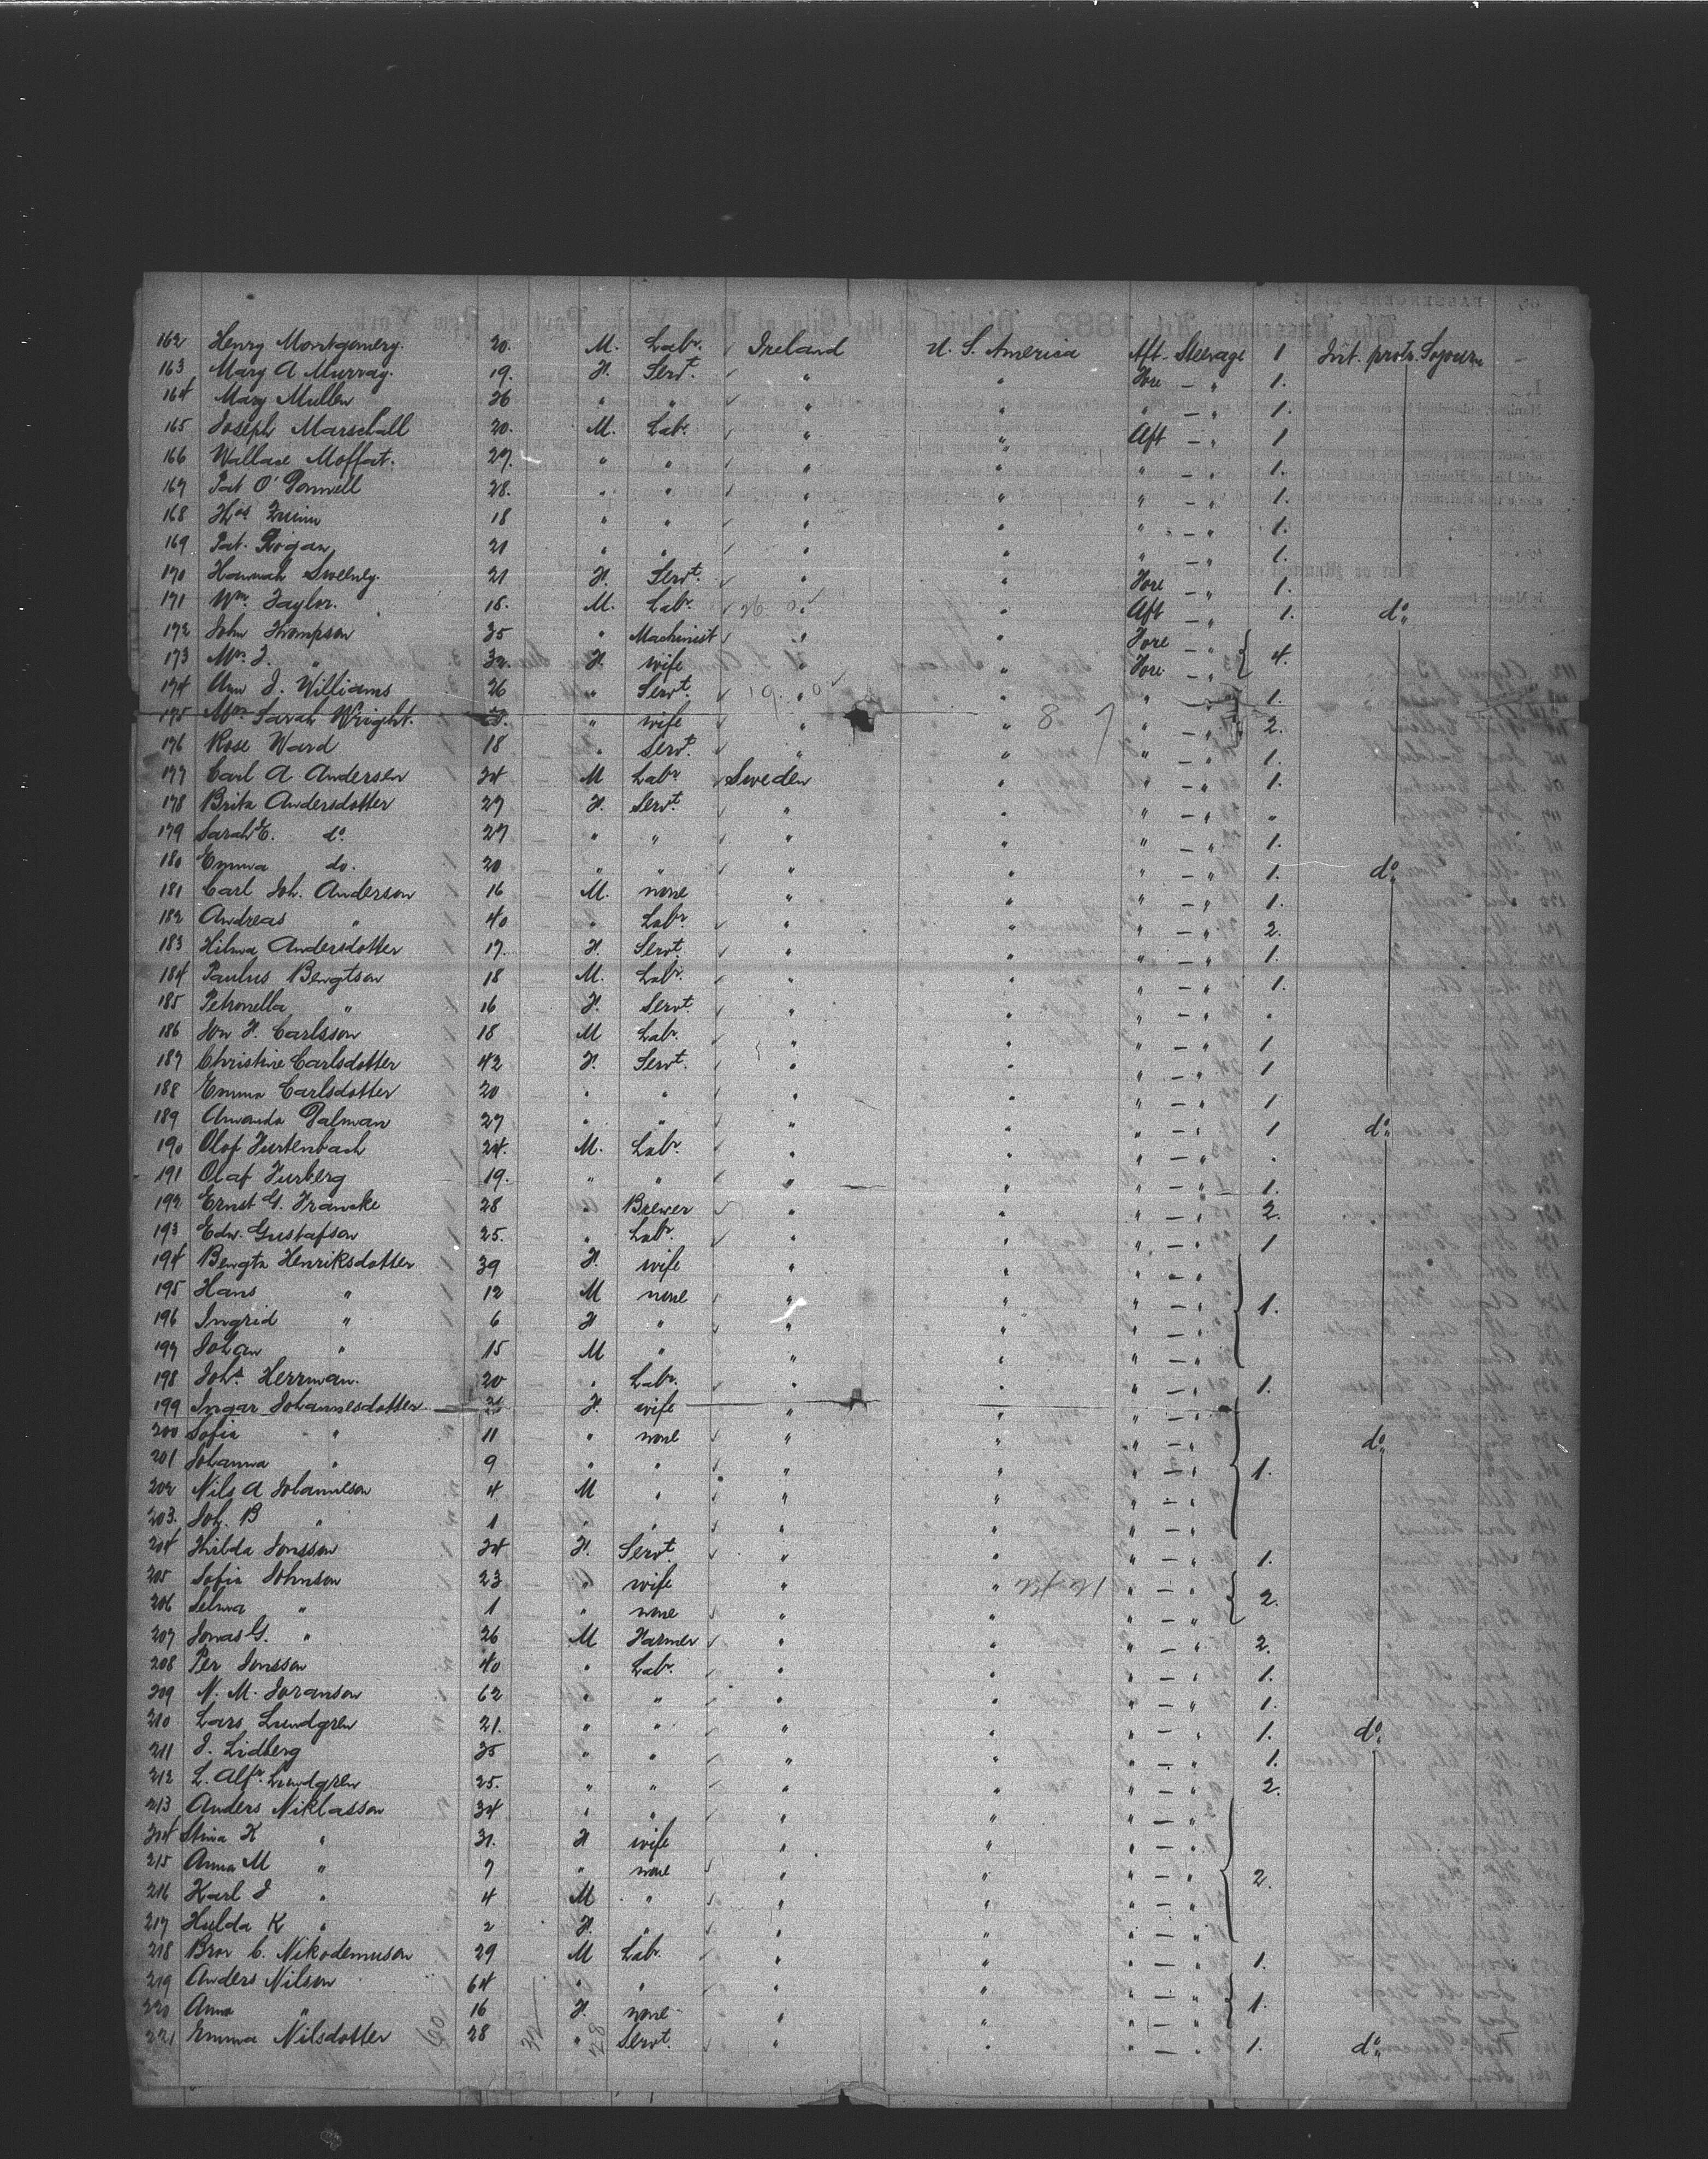 162 Henry Montgomery. 20. M. Labr. Ireland U. S. America Aft - Steerage 1 Int. protr. Sojourn
163 Mary A Murray. 19. F. Servt. " " Fore - " 1.
164 Mary Mullen 26 " " " " " - " 1.
165 Joseph Marschall 20. M. Labr. " " Aft - " 1
166 Wallace Moffat. 27. " " " " " - " 1.
167 Pat O'Donnell 28. " " " " " - " 1.
168 Thos Quinn 18 " " " " " - " 1.
169 Pat. Rogan 21 " " " " " - " 1.
170 Hannah Sweeney. 21 F. Servt. " " Fore - " 1.
171 Wm. Taylor. 18. M. Labr. " " Aft - " 1. do
172 John Thompson 35 " Machinist " " Fore - "
173 Mrs. J. " 32. F. wife " " Fore - " 4.
174 Ann J. Williams 26 " Servt. " " " - " 1.
175 Mrs Sarah Wright. " wife " " " - " 2.
176 Rose Ward 18 " Servt. " " " - " 1.
177 Carl A Andersen 34 M Labr Sweden " " - " 1.
178 Brita Andersdotter 27 F. Servt. " " " - " "
179 Sarah E. do. 27 " " " " " - " 1.
180 Emma do. 20 " " " " " - " 1. do
181 Carl Joh. Anderson 16 M. none " " " - " 1.
182 Andreas " 40 " Labr. " " " - " 2.
183 Hilma Andersdotter 17. F. Servt. " " " - " 1.
184 Paulus Bengtson 18 M. Labr. " " " - " 1.
185 Petronella " 16 F. Servt. " " " - " "
186 Jon F. Carlsson 18 M Labr. " " " - " 1
187 Christine Carlsdotter 42 F. Servt. " " " - " 1
188 Emma Carlsdotter 20 " " " " " - " 1
189 Amanda Dalman 27 " " " " " - " 1 do
190 Olof Furtenbach 24. M. Labr. " " " - " "
191 Olaf Furberg 19. " " " " " - " 1.
192 Ernst G. Francke 28 " Brewer " " " - " 2.
193 Edw. Gustafson 25. " Labr. " " " - " 1
194 Bengta Henriksdotter 39 F. wife " " " - "
195 Hans " 12 M none " " " - " 1.
196 Ingrid " 6 F " " " " - "
197 Johan " 15 M " " " " - "
198 Joht. Herrman. 20 " Labr. " " " - " 1.
199 Ingar Johannesdotter F. wife " " " - "
200 Sofia " 11 " none " " " - " do
201 Johanna " 9 " " " " " - " 1.
202 Nils A Johanneson 4 M " " " " - "
203. Joh. B " 1 " " " " " - "
204 Hilda Jonsson 34 F. Servt. " " " - " 1.
205 Sofia Johnson 23 " wife " " " - "
206 Selma " 1 " none " " " - " 2.
207 Jonas G. " 26 M Farmer " " " - " 2.
208 Per Jonsson 40 " Labr. " " " - " 1.
209 N. M. Joranson 62 " " " " " - " 1.
210 Lars Lundgren 21. " " " " " - " 1. do
211 J. Lidberg 35 " " " " " - " 1.
212 L. Alfr. Lundgren 25. " " " " " - " 2.
213 Anders Niklasson 34 " " " " " - "
214 Stina K " 31. F wife " " " - "
215 Anna M " 7 " none " " " - " 2.
216 Karl J " 4 M " " " " - "
217 Hulda K " 2 F. " " " " - "
218 Bror C. Nikodemuson 29 M Labr. " " " - " 1.
219 Anders Nilson 64 " " " " " - "
220 Anna " 16 F. none " " " - " 1.
221 Emma Nilsdotter 28 " Servt. " " " - " 1. do